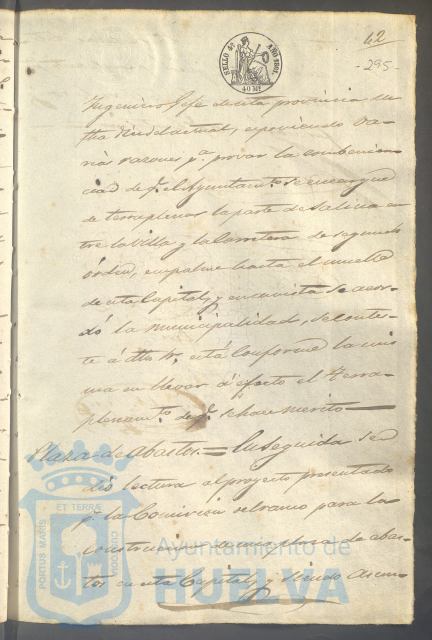 62
295
SELLO 4º AÑO 1861.
40 Ms
Ingeniero Gefe de esta provincia su
fha del actual, esponiendo va-
rias razones pª provar la combenien-
cia de qe el Ayuntamto se encargue
de terraplenar la parte de Salina en
tre la Villa y la Carretera de segundo
órden, empalme hasta el muelle
de esta Capital, y en su vista se acor-
dó la Municipalidad, se contes-
te á dho Sr. está conforme la mis
ma en llevar á efecto el Terra-
plenamto de qe se hace merito
Plaza de Abastos. = En seguida se
dió lectura al proyecto presentado
pr la Comision del ramo para la
construccion de una plaza de abas-
tos en esta Capital, y siendo
PORTUS MARIS ET TERRÆ CUSTODIA
Ayuntamiento de
HUELVA